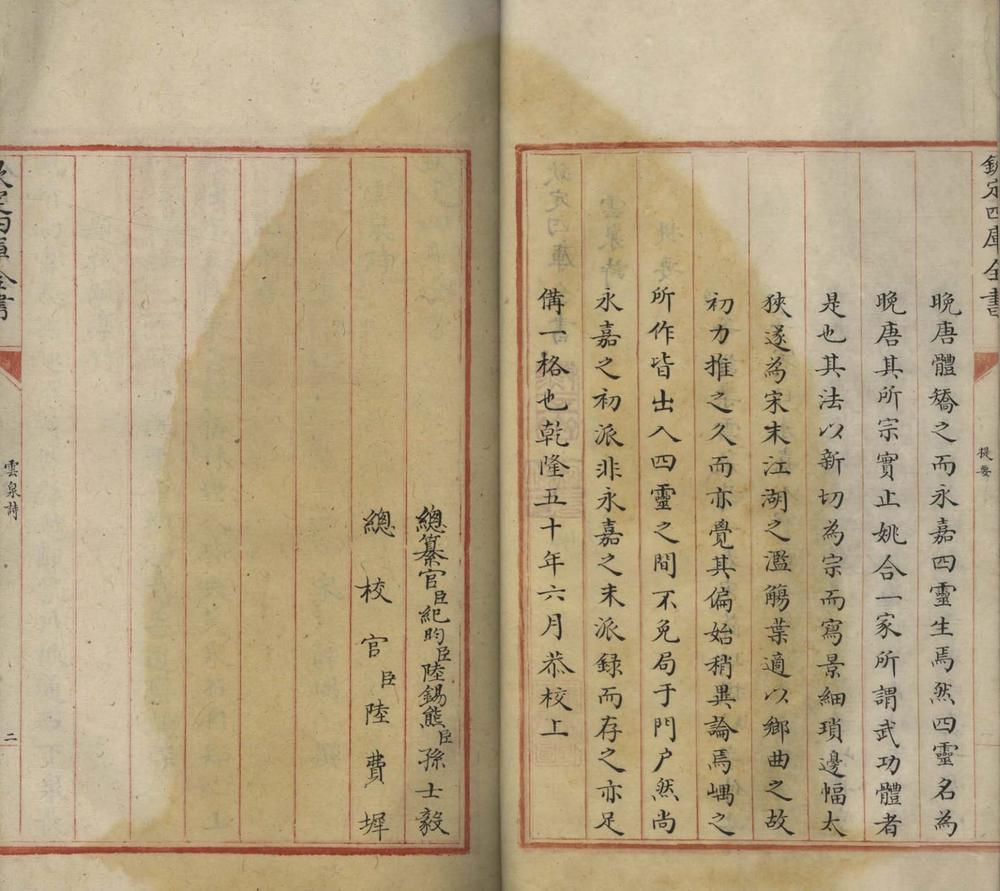 欽定四庫全書
提要
晚唐體矯之而永嘉四靈生焉然四靈名為
晚唐其所宗實止姚合一家所謂武功體者
是也其法以新切為宗而寫景細瑣邊幅太
狹遂為宋末江湖之濫觴葉適以鄉曲之故
初力推之久而亦覺其偏始稍異論焉嵎之
所作皆出入四靈之間不免局于門户然尚
永嘉之初派非永嘉之末派録而存之亦足
備一格也乾隆五十年六月恭校上
總纂官臣紀昀臣陸錫熊臣孫士毅
總校官臣陸費墀
欽定四庫全書
雲泉詩
二